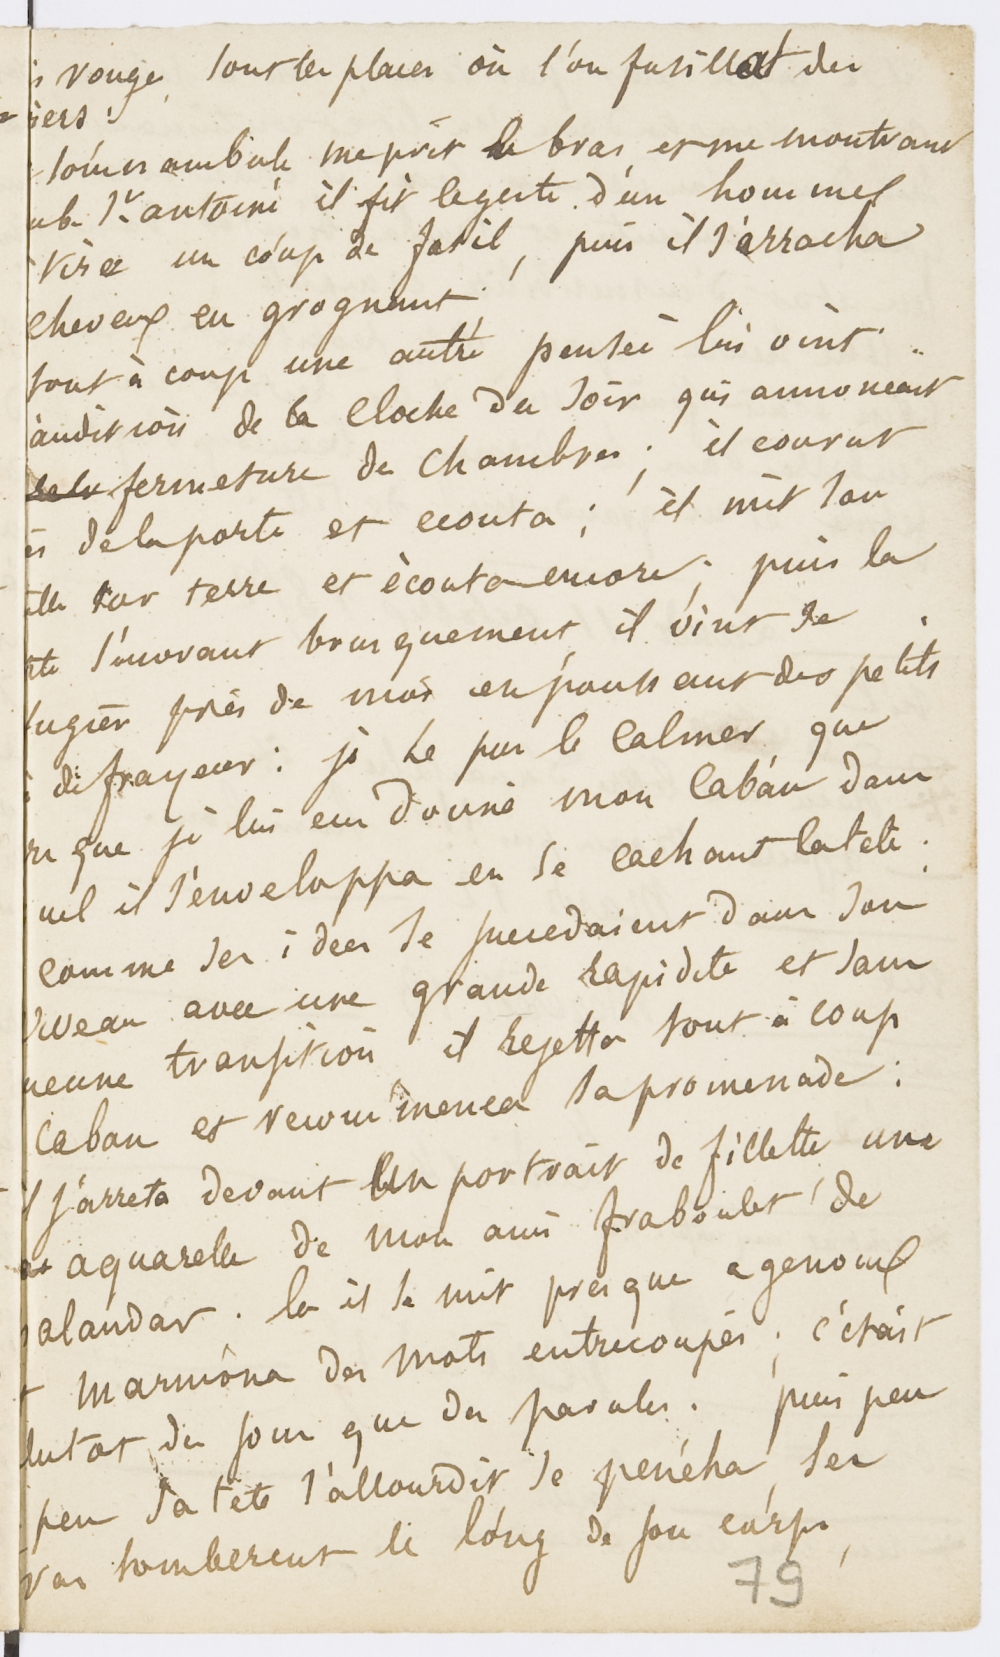 s rouge, sont les places où l'on fusillat des
iers.
somnambule me prit le bras et me montrant
ub. St antoine il fit le geste d'un homme
vise un coup de fusil, puis il s'arracha
cheveux en grognant,
tout à coup une autre pensée lui vint ..
audition de la cloche du soir qui annoncait
fermeture des chambres ; il courut
es de la porte et ecouta ; il mit son
eille sur terre et écouta encore ; puis la
rte s'ouvrant brusquement il vint se
fugier près de moi en poussant des petits
s de frayeur : je ne pus le calmer que
rs que je lui eus donné mon caban dans
uel il s'enveloppa en se cachant la tete .
comme ses idees se succedaient dans son
rveau avec une grande rapidite et sans
ucune transition il rejetta tout à coup
caban et recommenca sa promenade :
il s'arreta devant un portrait de fillette une
aquarelle de mon ami fraboulet de
alandar . la il se mit presque a genoux
t marmona des mots entrecoupés ; c'était
lutot des sons que des paroles . puis peu
peu sa tête s'allourdit se pencha, ses
ras tomberent le long de son corps,
79